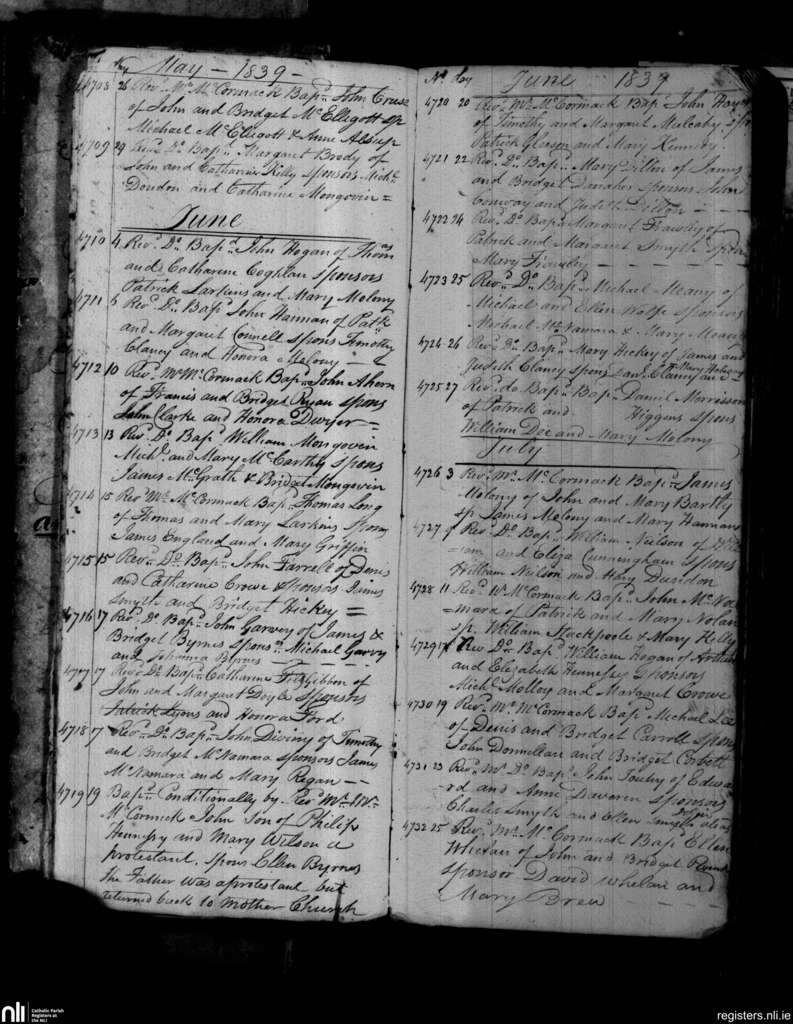 May - 1839 -
4708 26 Revd. Mr. McCormack Bapd. John Cruse
of John and Bridget McElligott sp
Michael McEligott & Anne Alsup
4709 29 Revd. Do. Bapd. Margaret Brody of
John and Catharine Kelly sponsors Michl.
Dondon and Catharine Mongovin =
June
4710 4 Revd. Do. Bapd. John Hogan of Thoms
and Catharine Coghlan sponsors
Patrick Larkins and Mary Molony
4711 6 Revd. Do. Bapd. John Hannan of Patk.
and Margaret Connell spons Timothy
Clancy and Honora Molony
4712 10 Revd. Mr. McCormack Bapd. John Ahern
of Francis and Bridget Ryan spons
John Clarke and Honora Dwyer =
4713 13 Revd. Do. Bapd. William Mongovin
Michl. and Mary McCarthy spons
James McGrath & Bridget Mongovin
4714 15 Revd Mr. McCormack Bapd. Thomas Long
of Thomas and Mary Larkins spons
James England and Mary Griffin
4715 15 Revd. Do. Bapd. John Farrell of Denis
and Catharine Crowe sponsors James
Smyth and Bridget Hickey =
4716 17 Revd. Do Bapd. John Garvey of James &
Bridget Byrnes sponsrs. Michael Garvy
and Johanna Byrnes - -
4717 17 Revd Do. Bapd. Catharine Fitzgibbon of
John and Margaret Doyle sponsors
Patrick Lyons and Honora Ford
4718 17 Revd. Do. Bapd. John Diviny of Timothy
and Bridget McNamara sponsors James
McNamara and Mary Regan - -
4719 19 Bapd. Conditionally by Revd Mr.
McCormick John Son of Philip
Hennessy and Mary Wilson a
protestant, spons Ellen Byrnes
the Father was a protestant but
returned back to Mother Church
No. Day June 1839
4720 20 Revd. Mr. McCormack Bap. John Hayes
of Timothy and Margaret Mulcahy spr
Patrick Gleeson and Mary Kennedy
4721 22 Revd. Do. Bapd. Mary Dillon of James
and Bridget Danaher sponsors John
Conway and Judith Dillon
4722 24 Revd. Do. Bapd. Margaret Frawley of
Patrick and Margaret Smyth
Mary Frawley
4723 25 Revd. Do. Bapd. Michael Meany of
Michael and Ellen Wolfe sponsors
Michael McNamara & Mary Meany
4724 26 Revd. Do. Bapd. Mary Hickey of James and
Judith Clancy spons Lawr. Clancy and Mary
4725 27 Revd. do Bapd. Daniel Morrisson
of Patrick and Higgens spons
William Doe and Mary Molony
July
4726 3 Revd. Mr. McCormack Bapd. James
Molony of John and Mary Bartly
sp James Molony and Mary Hannan
4727 7 Revd. Do. Bapd. William Neilson of Will
=iam and Eliza Cunningham spons
William Neilson and Mary Dundon
4728 11 Revd. W. McCormack Bapd. John McNa
mara of Patrick and Mary Nolan
sp. William Stackpoole & Mary Helly
4729 Revd Do. Bapd. William Hogan of Arthur
and Elizabeth Hennesey Sponsors
Michl. Molloy and Margaret Crowe
4730 19 Revd. Mr. McCormack Bapd Michael Lee
of Denis and Bridget Carroll spons
John Donnellan and Bridget Corbett
4731 23 Revd. Mr. Do. Bapd. John Touhy of Edwa
rd and Anne Davoren sponsors
Charles Smyth and Ellen
4732 25 Revd. Mr. McCormack Bap Ellen
Whelan of John and Bridget
sponsor David Whelan and
Mary Brew
nli Catholic Parish
Registers at
the NLI
registers.nli.ie